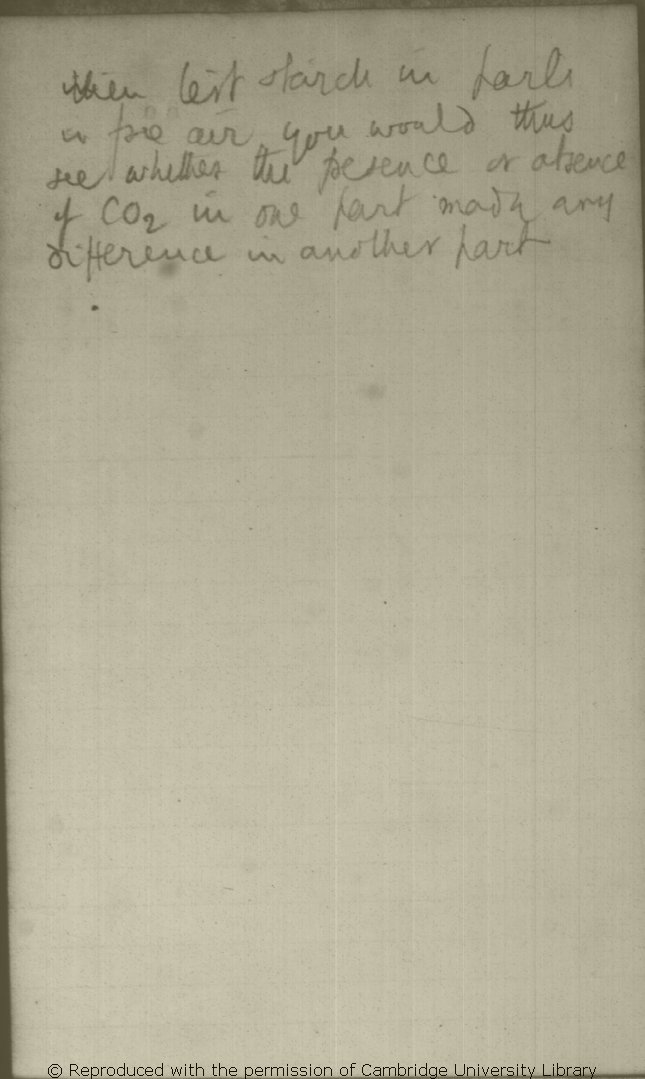 then test starch in parts
in free air you would thus
see whether the presence or absence
of CO2 in one part made any
difference in another part
© Reproduced with the permission of Cambridge University Library